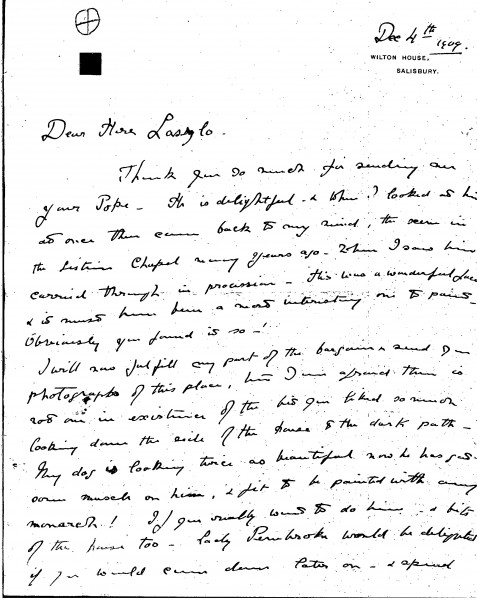 Dec 4th 1909.
WILTON HOUSE,
SALISBURY.
Dear Herr Laszlo.
Thank you so much for sending me
your Pope – He is delightful – & when I looked at him
at once there came back to my mind, the scene in
the Sistine Chapel many years ago – when I saw him
carried through in procession – His was a wonderful face
& it must have been a most interesting one to paint –
Obviously you found it so – !
I will now fulfill my part of the bargain & send you
photographs of this place, but I am afraid there is
not one in existence of the bit you liked so much
looking down the side of the house & the dark path –
My dog is looking twice as beautiful now he has got
some muscle on him, & fit to be painted with any
monarch! If you really want to do him, & bits
of the house too – Lady Pembroke would be delighted
if you would come down later on – & spend